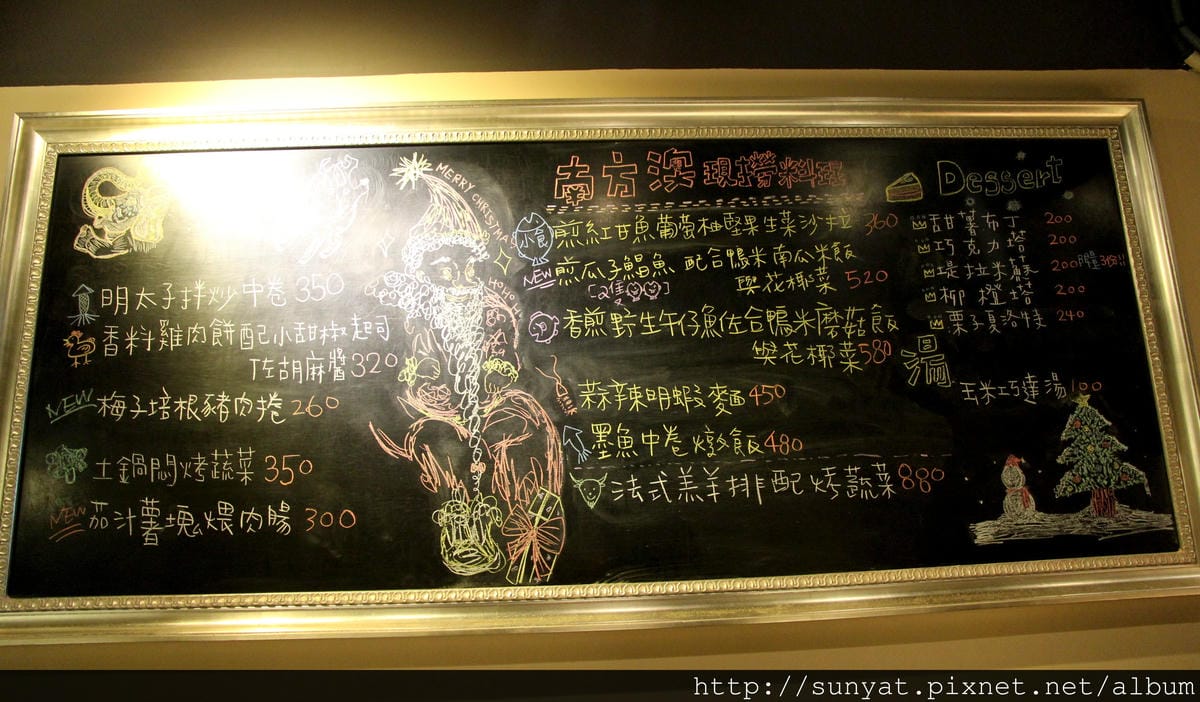 明太子拌炒中卷 350
香料雞肉餅配小甜椒起司
佐胡麻醬 320
NEW 梅子培根豬肉捲 260
土鍋悶烤蔬菜 350
NEW 茄汁薯塊煨肉腸 300
MERRY CHRISTMAS
HOHO
南方濱現撈料理
小食 煎紅甘魚葡萄柚堅果生菜沙拉 360
NEW 煎瓜子鯧魚 配合鴨米南瓜米飯
[2隻] 與花椰菜 520
香煎野生午仔魚佐合鴨米蘑菇飯
與花椰菜 580
蒜辣明蝦麵 450
墨魚中卷燉飯 480
法式羔羊排配烤蔬菜 880
Dessert
甜薯布丁 200
巧克力塔 200
堤拉米蘇 200
柳橙塔 200
栗子夏洛特 240
湯
玉米巧達湯 100
http://sunyat.pixnet.net/album